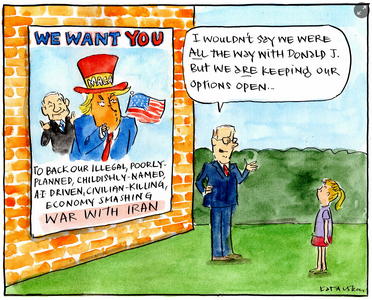 WE WANT YOU
MAGA
TO BACK OUR ILLEGAL, POORLY-
PLANNED, CHILDISHLY-NAMED,
AI DRIVEN, CIVILIAN-KILLING,
ECONOMY SMASHING
WAR WITH IRAN
I WOULDN'T SAY WE WERE
ALL THE WAY WITH DONALD J.
BUT WE ARE KEEPING OUR
OPTIONS OPEN...